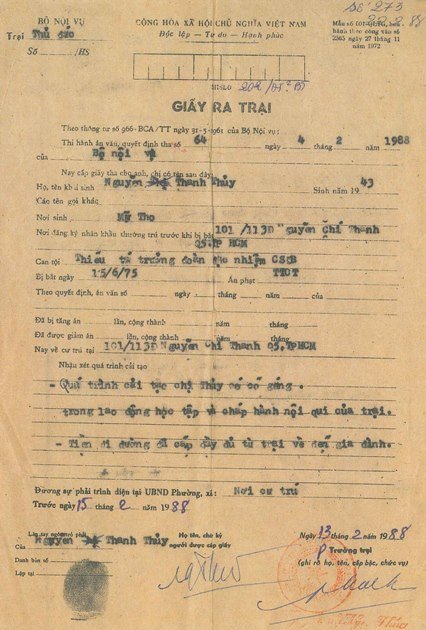 Số 273
22.2.88
BỘ NỘI VỤ
CỘNG HÒA XÃ HỘI CHỦ NGHĨA VIỆT NAM
Mẫu số 001-QLTG, ban
Trại Thủ đức
Độc lập - Tự do - Hạnh phúc
hành theo công văn số
Số /HS
2565 ngày 27 tháng 11
năm 1972
GIẤY RA TRẠI
Theo thông tư số 966-BCA/TT ngày 31-5-1961 của Bộ Nội vụ;
Thi hành án văn, quyết định tha số 64 ngày 4 tháng 2 năm 1988
của Bộ nội vụ
Nay cấp giấy tha cho anh, chị có tên sau đây:
Họ, tên khai sinh Nguyễn Thanh Thủy Sinh năm 1943
Các tên gọi khác
Nơi sinh Mỹ Tho
Nơi đăng ký nhân khẩu thường trú trước khi bị bắt 101/113D Nguyễn Chí Thanh
Q5.TP HCM
Can tội Thiếu tá trưởng đoàn CSQB
Bị bắt ngày 15/6/75 Án phạt TTCT
Theo quyết định, án văn số ngày tháng năm của
Đã bị tăng án lần, cộng thành năm tháng
Đã được giảm án lần, cộng thành năm tháng
Nay về cư trú tại 101/113D Nguyễn Chí Thanh Q5.TPHCM
Nhận xét quá trình cải tạo
- Quá trình cải tạo chị Thủy có cố gắng.
trong lao động học tập và chấp hành nội qui của trại.
- Tiền đi đường đã cấp đầy đủ từ trại về đến gia đình.
Đương sự phải trình diện tại UBND Phường, xã: Nơi cư trú
Trước ngày 15 tháng 2 năm 1988
Lăn tay ngón trỏ phải
Họ tên, chữ ký
Ngày 13 tháng 2 năm 1988
Của Nguyễn Thanh Thủy
người được cấp giấy
P Trưởng trại
Danh bản số
(ghi rõ họ, tên, cấp bậc, chức vụ)
Lập tại